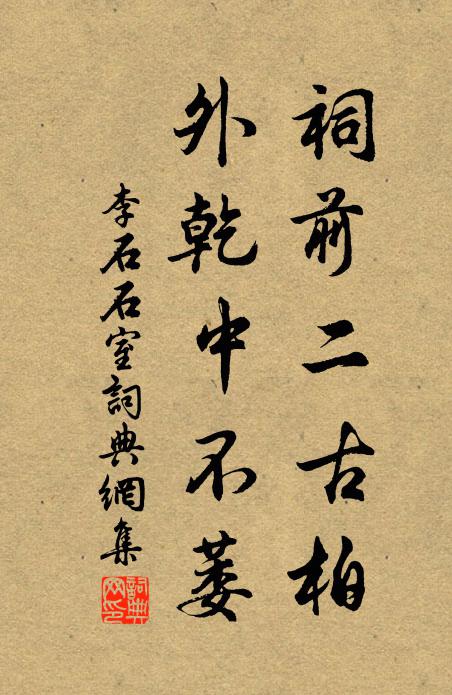 祠前二古柏
外乾中不萎
李石石室詞典網集
詞典網印